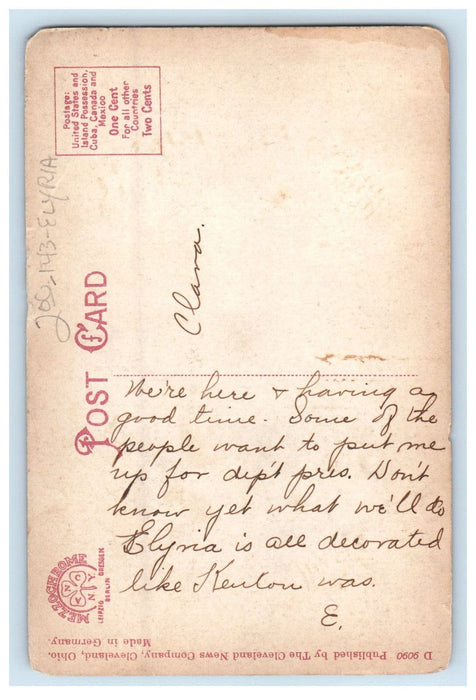 Postage:
United States and
Island Possession,
Cuba, Canada and
Mexico
One Cent
For all other
Countries
Two Cents
143-ELYRIA
POST CARD
Clara.
We're here & having a
good time. Some of the
people want to put me
up for dep't pres. Don't
know yet what we'll do
Elyria is all decorated
like Kenton was.
E.
MEZZOCHROME
N C N Y
LEIPZIG
BERLIN
DRESDEN
D 9090 Published by The Cleveland News Company, Cleveland, Ohio.
Made in Germany.